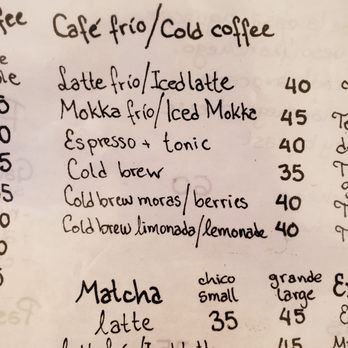 Café frío/Cold coffee
Latte frío/Iced latte 40
Mokka frío/Iced Mokka 45
Espresso + tonic 40
Cold brew 35
Cold brew moras/berries 40
Cold brew limonada/lemonade 40
Matcha chico small grande large
latte 35 45